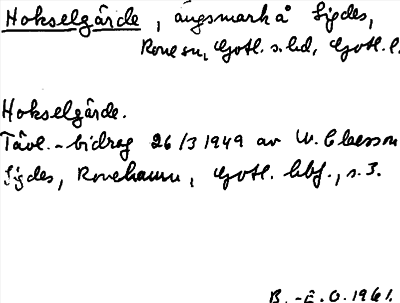 Hokselgärde, ängsmark å Sigdes,
Rone sn, Gotl. s. hd, Gotl. l.
Hokselgärde.
Tävl.-bidrag 26/3 1949 av W. Claesson
Sigdes, Ronehamn, Gotl. hbf., s. 3.
B.-E. O. 1961.